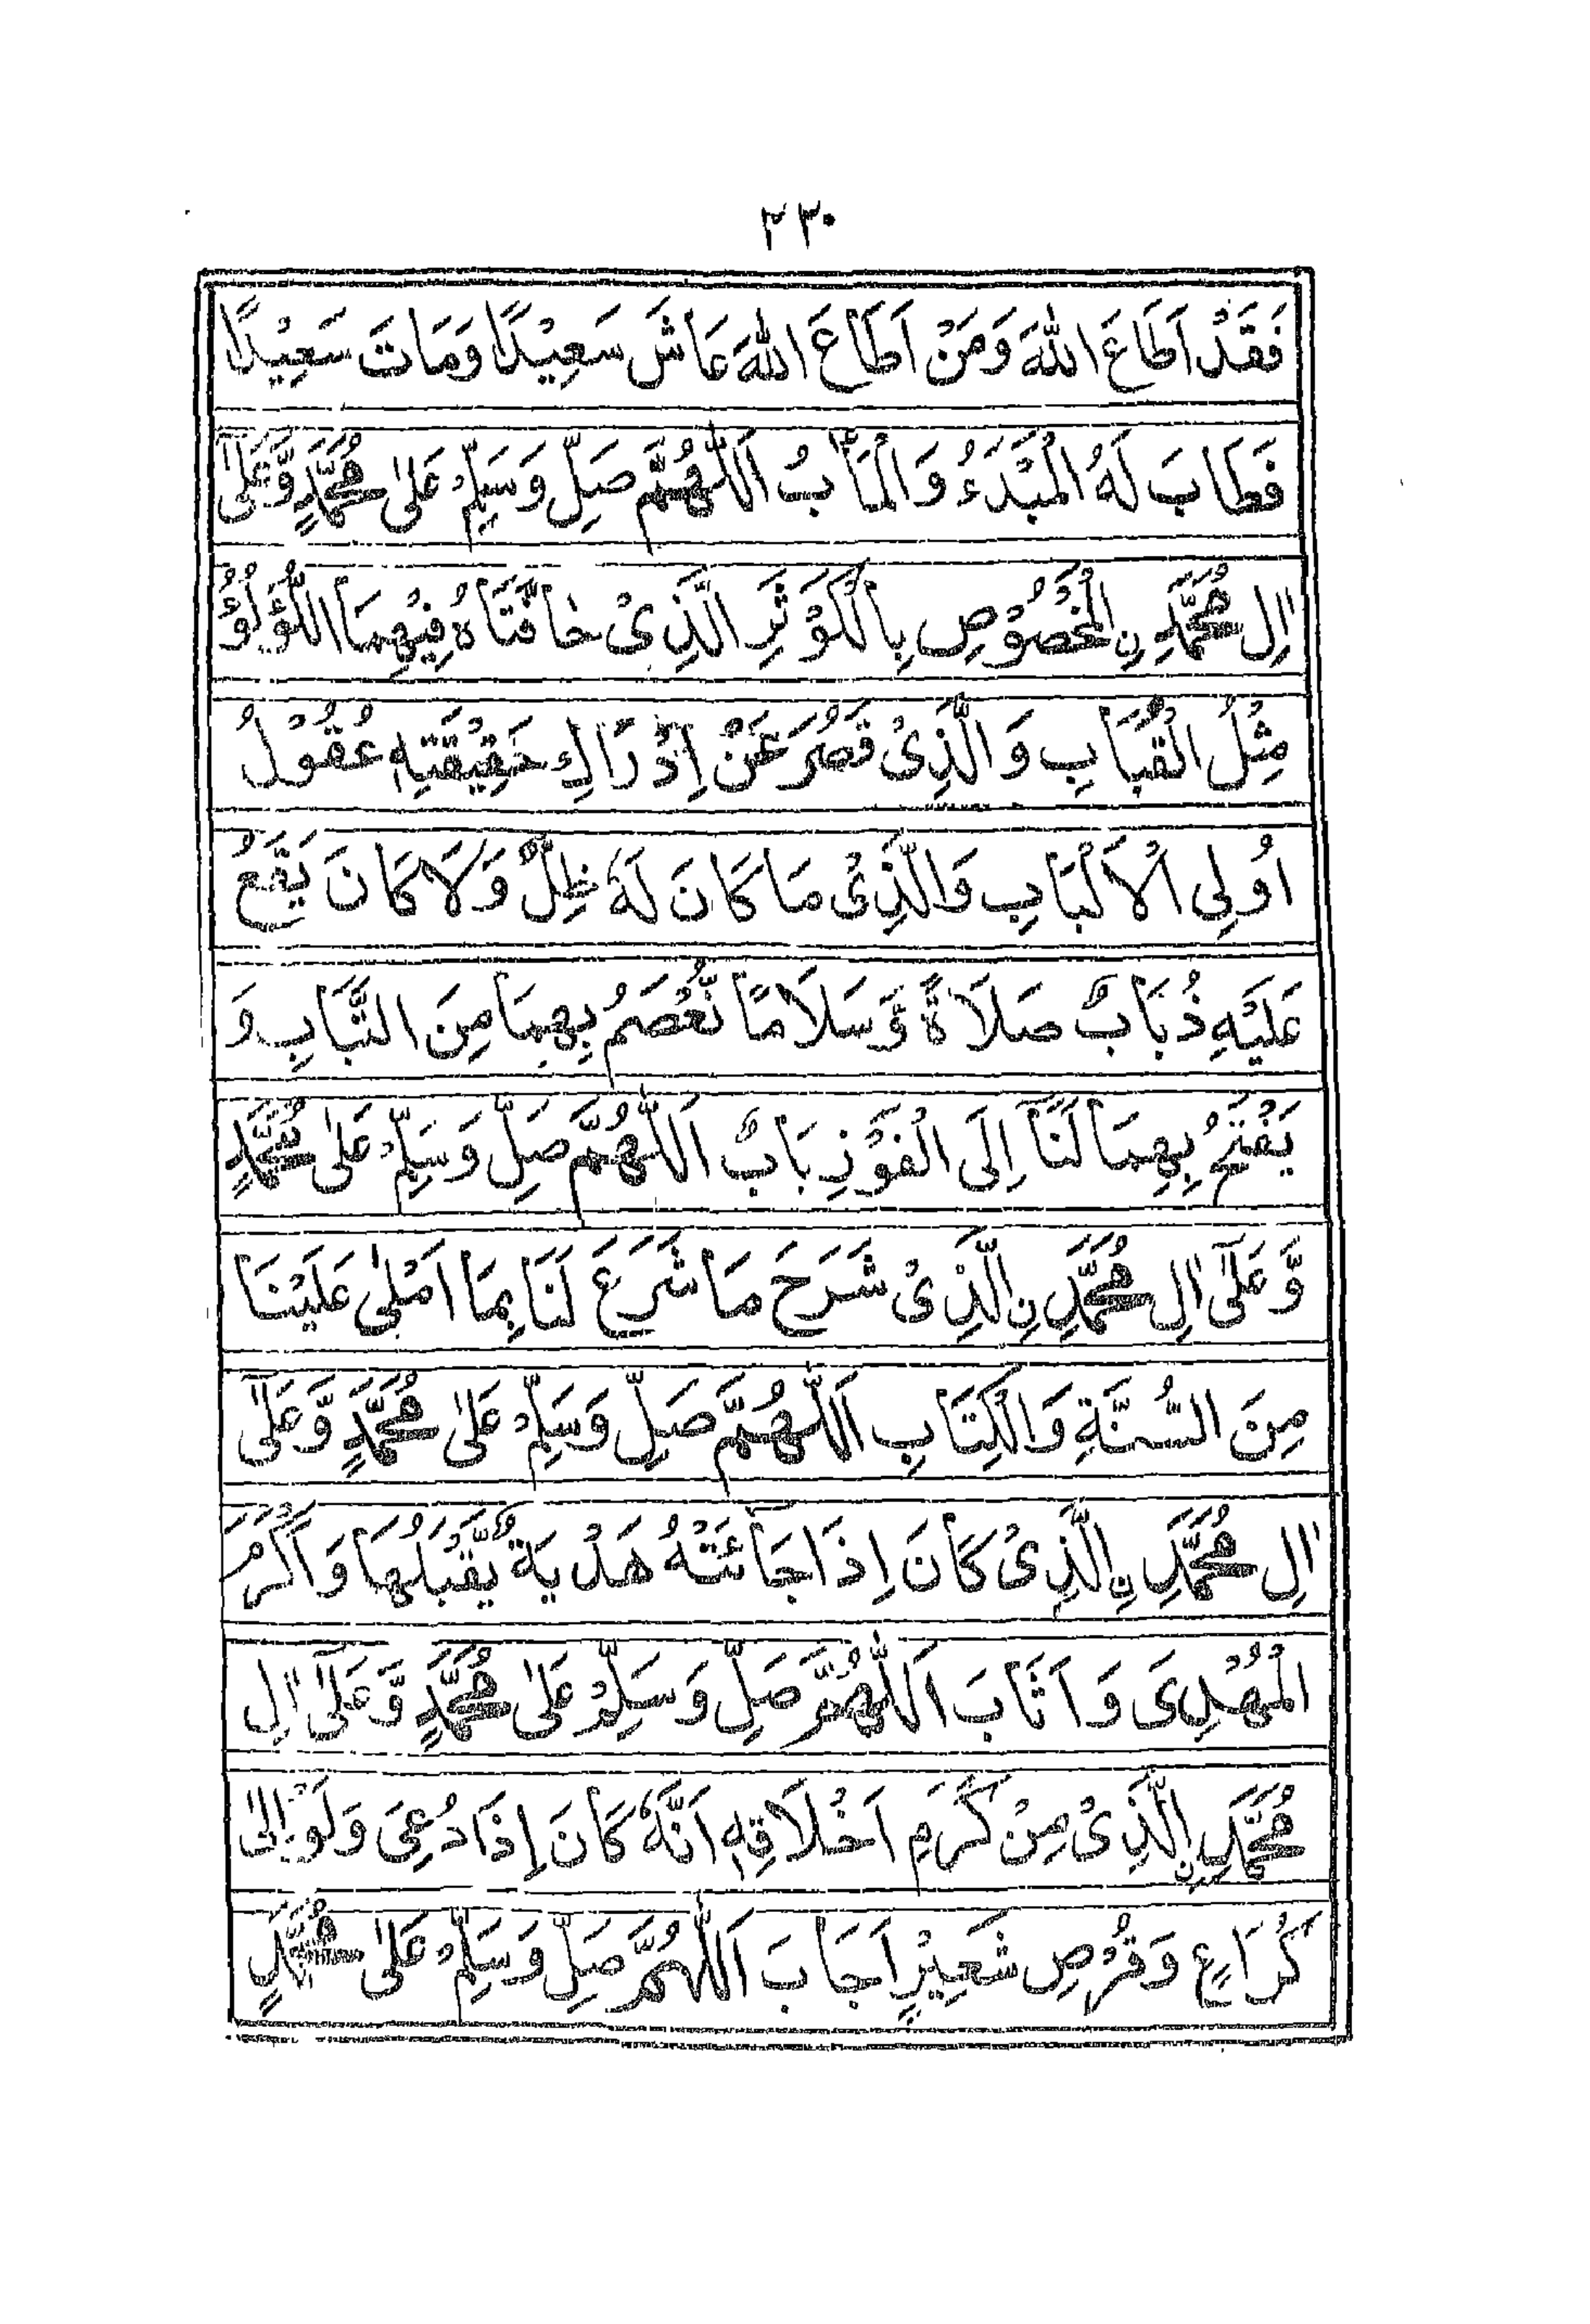 ٢٣٠
فَقَدْ اَطَاعَ اللّٰهَ وَمَنْ اَطَاعَ اللّٰهَ عَاشَ سَعِيْدًا وَمَاتَ سَعِيْدًا
فَطَابَ لَهُ الْمَبْدَءُ وَالْمَاٰبُ اَللّٰهُمَّ صَلِّ وَسَلِّمْ عَلٰى مُحَمَّدٍ وَّعَلٰٓى
اٰلِ مُحَمَّدِ نِ الْمَخْصُوْصِ بِالْكَوْثَرِ الَّذِىْ حَافَتَاهُ فِيْهِمَا اللُّؤْلُؤُ
مِثْلُ الْقُبَابِ وَالَّذِىْ قَصُرَ عَنْ اِدْرَاكِ حَقِيْقَتِهٖ عُقُوْلُ
اُولِى الْاَلْبَابِ وَالَّذِىْ مَا كَانَ لَهٗ ظِلٌّ وَلَا كَانَ يَقَعُ
عَلَيْهِ ذُبَابٌ صَلَاةً وَّسَلَامًا نُّعْصَمُ بِهِمَا مِنَ التَّبَابِ وَ
يَفْتَحُ بِهِمَا لَنَآ اِلَى الْفَوْزِ بَابٌ اَللّٰهُمَّ صَلِّ وَسَلِّمْ عَلٰى مُحَمَّدٍ
وَّعَلٰٓى اٰلِ مُحَمَّدِ نِ الَّذِىْ شَرَحَ مَا شَرَعَ لَنَا بِمَا اَمْلٰى عَلَيْنَا
مِنَ السُّنَّةِ وَالْكِتَابِ اَللّٰهُمَّ صَلِّ وَسَلِّمْ عَلٰى مُحَمَّدٍ وَّعَلٰٓى
اٰلِ مُحَمَّدِ نِ الَّذِىْ كَانَ اِذَا جَآئَتْهُ هَدْيَةٌ يَّقْبَلُهَا وَاَكْرَمَ
الْمُهْدِىَ وَاَثَابَ اَللّٰهُمَّ صَلِّ وَسَلِّمْ عَلٰى مُحَمَّدٍ وَّعَلٰٓى اٰلِ
مُحَمَّدِ نِ الَّذِىْ مِنْ كَرَمِ اَخْلَاقِهٖ اَنَّهٗ كَانَ اِذَا دُعِىَ وَلَوْ اِلٰى
كُرَاعٍ وَقُرْصِ شَعِيْرٍ اَجَابَ اَللّٰهُمَّ صَلِّ وَسَلِّمْ عَلٰى مُحَمَّدٍ